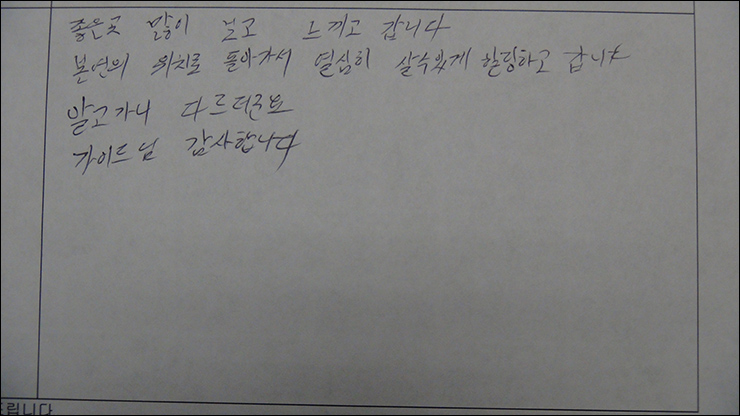 좋은곳 많이 보고 느끼고 갑니다
본연의 위치로 돌아가서 열심히 살수있게 힐링하고 갑니다
알고가니 다르더군요
가이드님 감사합니다
드립니다